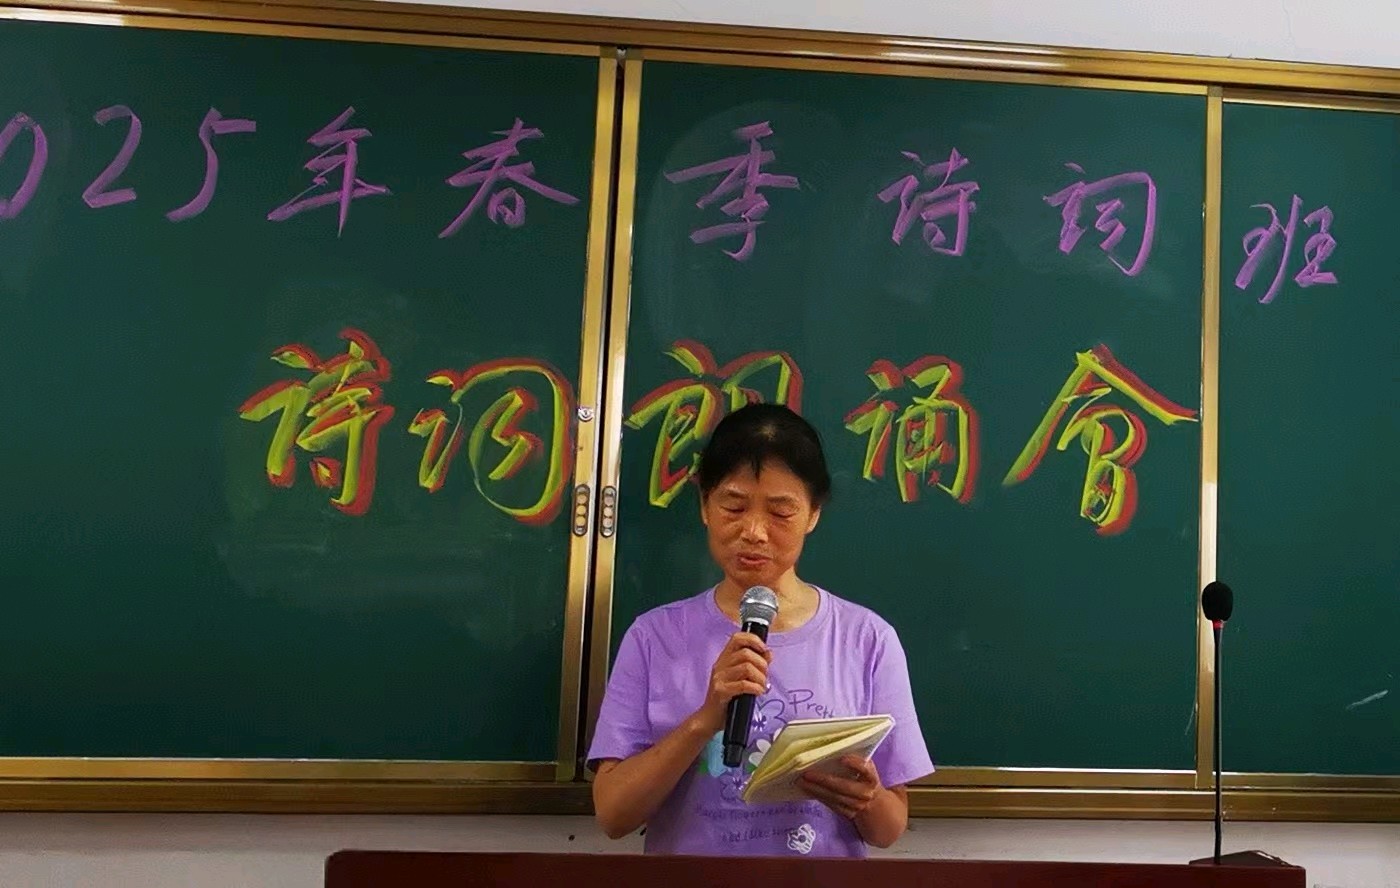 025年春季诗词班
诗词朗诵會
Pretty